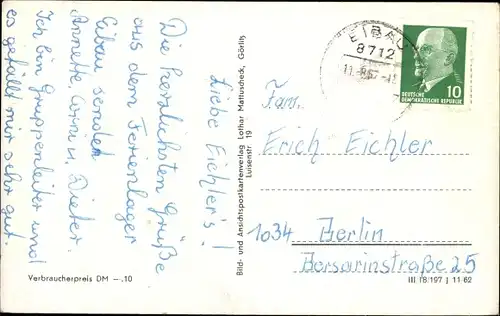 Liebe Eichler's!
Die herzlichsten Grüße
aus dem Ferienlager
Eibau senden
Annette, u. Dieter.
Ich bin Gruppenleiter und
es gefällt mir sehr gut.
Verbraucherpreis DM –.10
Bild- und Ansichtspostkartenverlag Lothar Mattuscheck, Görlitz
Luisenstr. 19
EIBAU
8712
10
DEUTSCHE
DEMOKRATISCHE REPUBLIK
Fam.
Erich Eichler
1034 Berlin
Bersarinstraße 25
III 18/197 | 11 62